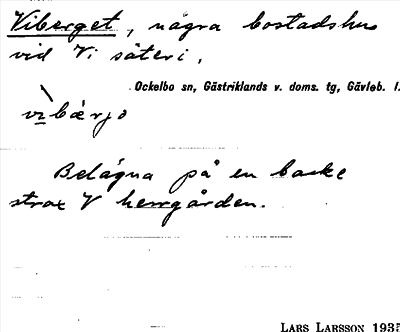 Viberget, några bostadshus
vid Vi säteri,
Ockelbo sn, Gästriklands v. doms. tg, Gävleb. l.
vìbærjə
Belägna på en backe
strax V herrgården.
LARS LARSSON 1935